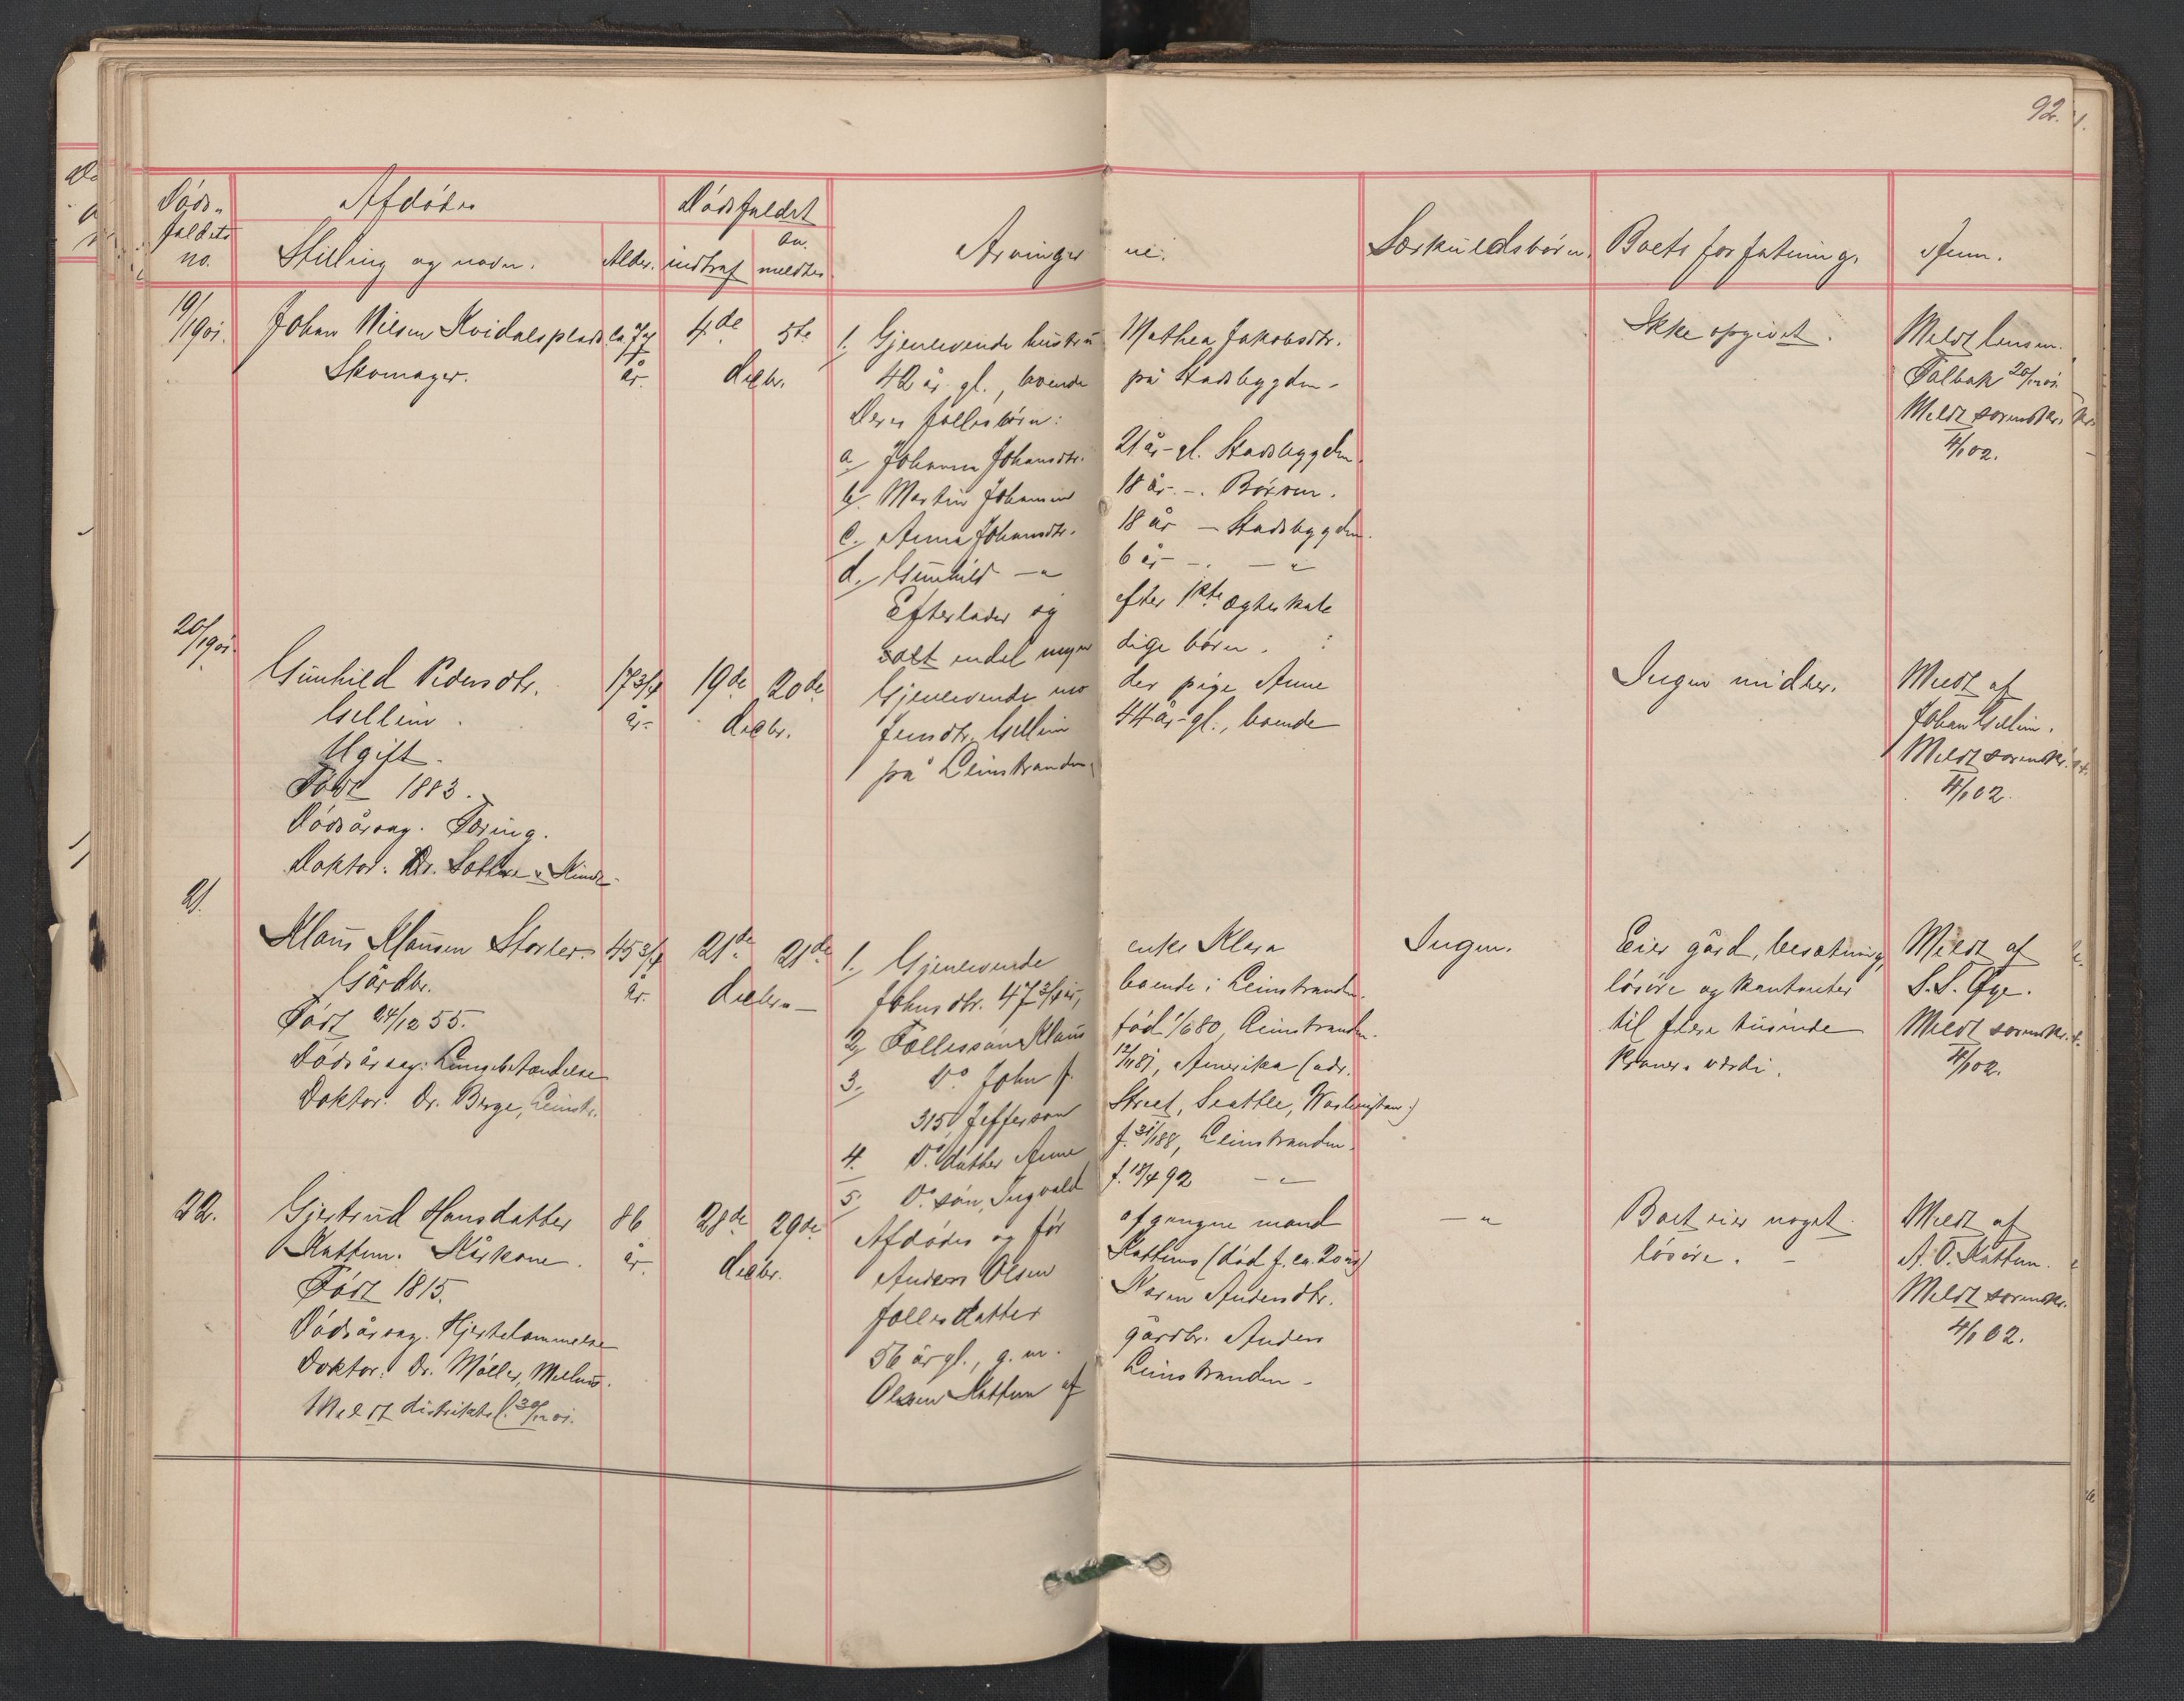 92.
Døds-
faldets
no.
Afdødes
Stilling og navn.
Alder.
Dødsfaldet
indtraf
an-
meldtes
Arvinger ne:
Særkuldsbørn.
Boets forfatning.
Anm.
19/1901.
Johan Nilsen Kvidalsplads
Skomager.
ca. 74
år.
4de 5te
decbr.
1. Gjenlevende hustru Mathea Jakobsdtr.
42 år gl., boende på Stadsbygden.
Deres fællesbørn:
a. Johanna Johansdtr. 21 år gl. Stadsbygden.
b. Martin Johansen 18 år -. Børsen.
c. Anna Johansdtr. 18 år - Stadsbygden.
d. Gunhild -"- 6 år -. -"-
Efterlader og efter 1ste ægteskab
endel myn dige børn.
Ikke opgivet.
Meldt lensm.
20/12 01.
Meldt sorenskr.
4/1 02.
20/1901.
Gunhild Pedersdtr.
Gellein.
Ugift.
Født 1883.
Dødsårsag. Tæring.
Doktor: Dr.
17 3/4
år.
19de 20de
decbr.
Gjenlevende mo der pige Anne
Jensdtr. Gellein 44 år gl., boende
på Leinstranden
Ingen midler.
Meldt af
Johan Gellein.
Meldt sorenskr.
4/1 02.
21.
Klaus Klausen Storler
Gårdbr.
Født 24/12 55.
Dødsårsag: Lungebetændelse
Doktor: Dr. Berge, Leinstr.
45 3/4
år.
21de 21de
decbr. -
1. Gjenlevende enke Klara
Johnsdtr. 47 3/4 år, boende i Leinstranden.
2. Fællessøn Klaus fød 1/6 80, Leinstranden.
3. Do John f. 12/1 81, Amerika (adr.
315 Jefferson Street, Seattle, Washington)
4. Do datter Anne f. 31/1 88, Leinstranden.
5. Do søn, Ingvald f. 18/4 92 -"-
Ingen.
Eier gård, besætning,
løsøre og kontanter
til flere tusinde
kroners værdi.
Meldt af
S. S. Øye.
Meldt sorenskr.
4/1 02.
22.
Gjertrud Hansdatter
Kattem. Kårkone.
Født 1815.
Dødsårsag. Hjertelammelse
Doktor: Dr. Møller, Melhus.
Meldt distriktsl. 30/12 01.
86
år.
28de 29de
decbr.
Afdødes og før afgangne mand
Anders Olsen Kattems (død f. ca. 20 år)
fællesdatter Karen Andersdtr.
56 år gl., g. m. gårdbr. Anders
Olsen Kattem af Leinstranden.
-"-
Boet eier noget
løsøre. -
Meldt af
A. O. Kattem.
Meldt sorenskr.
4/1 02.